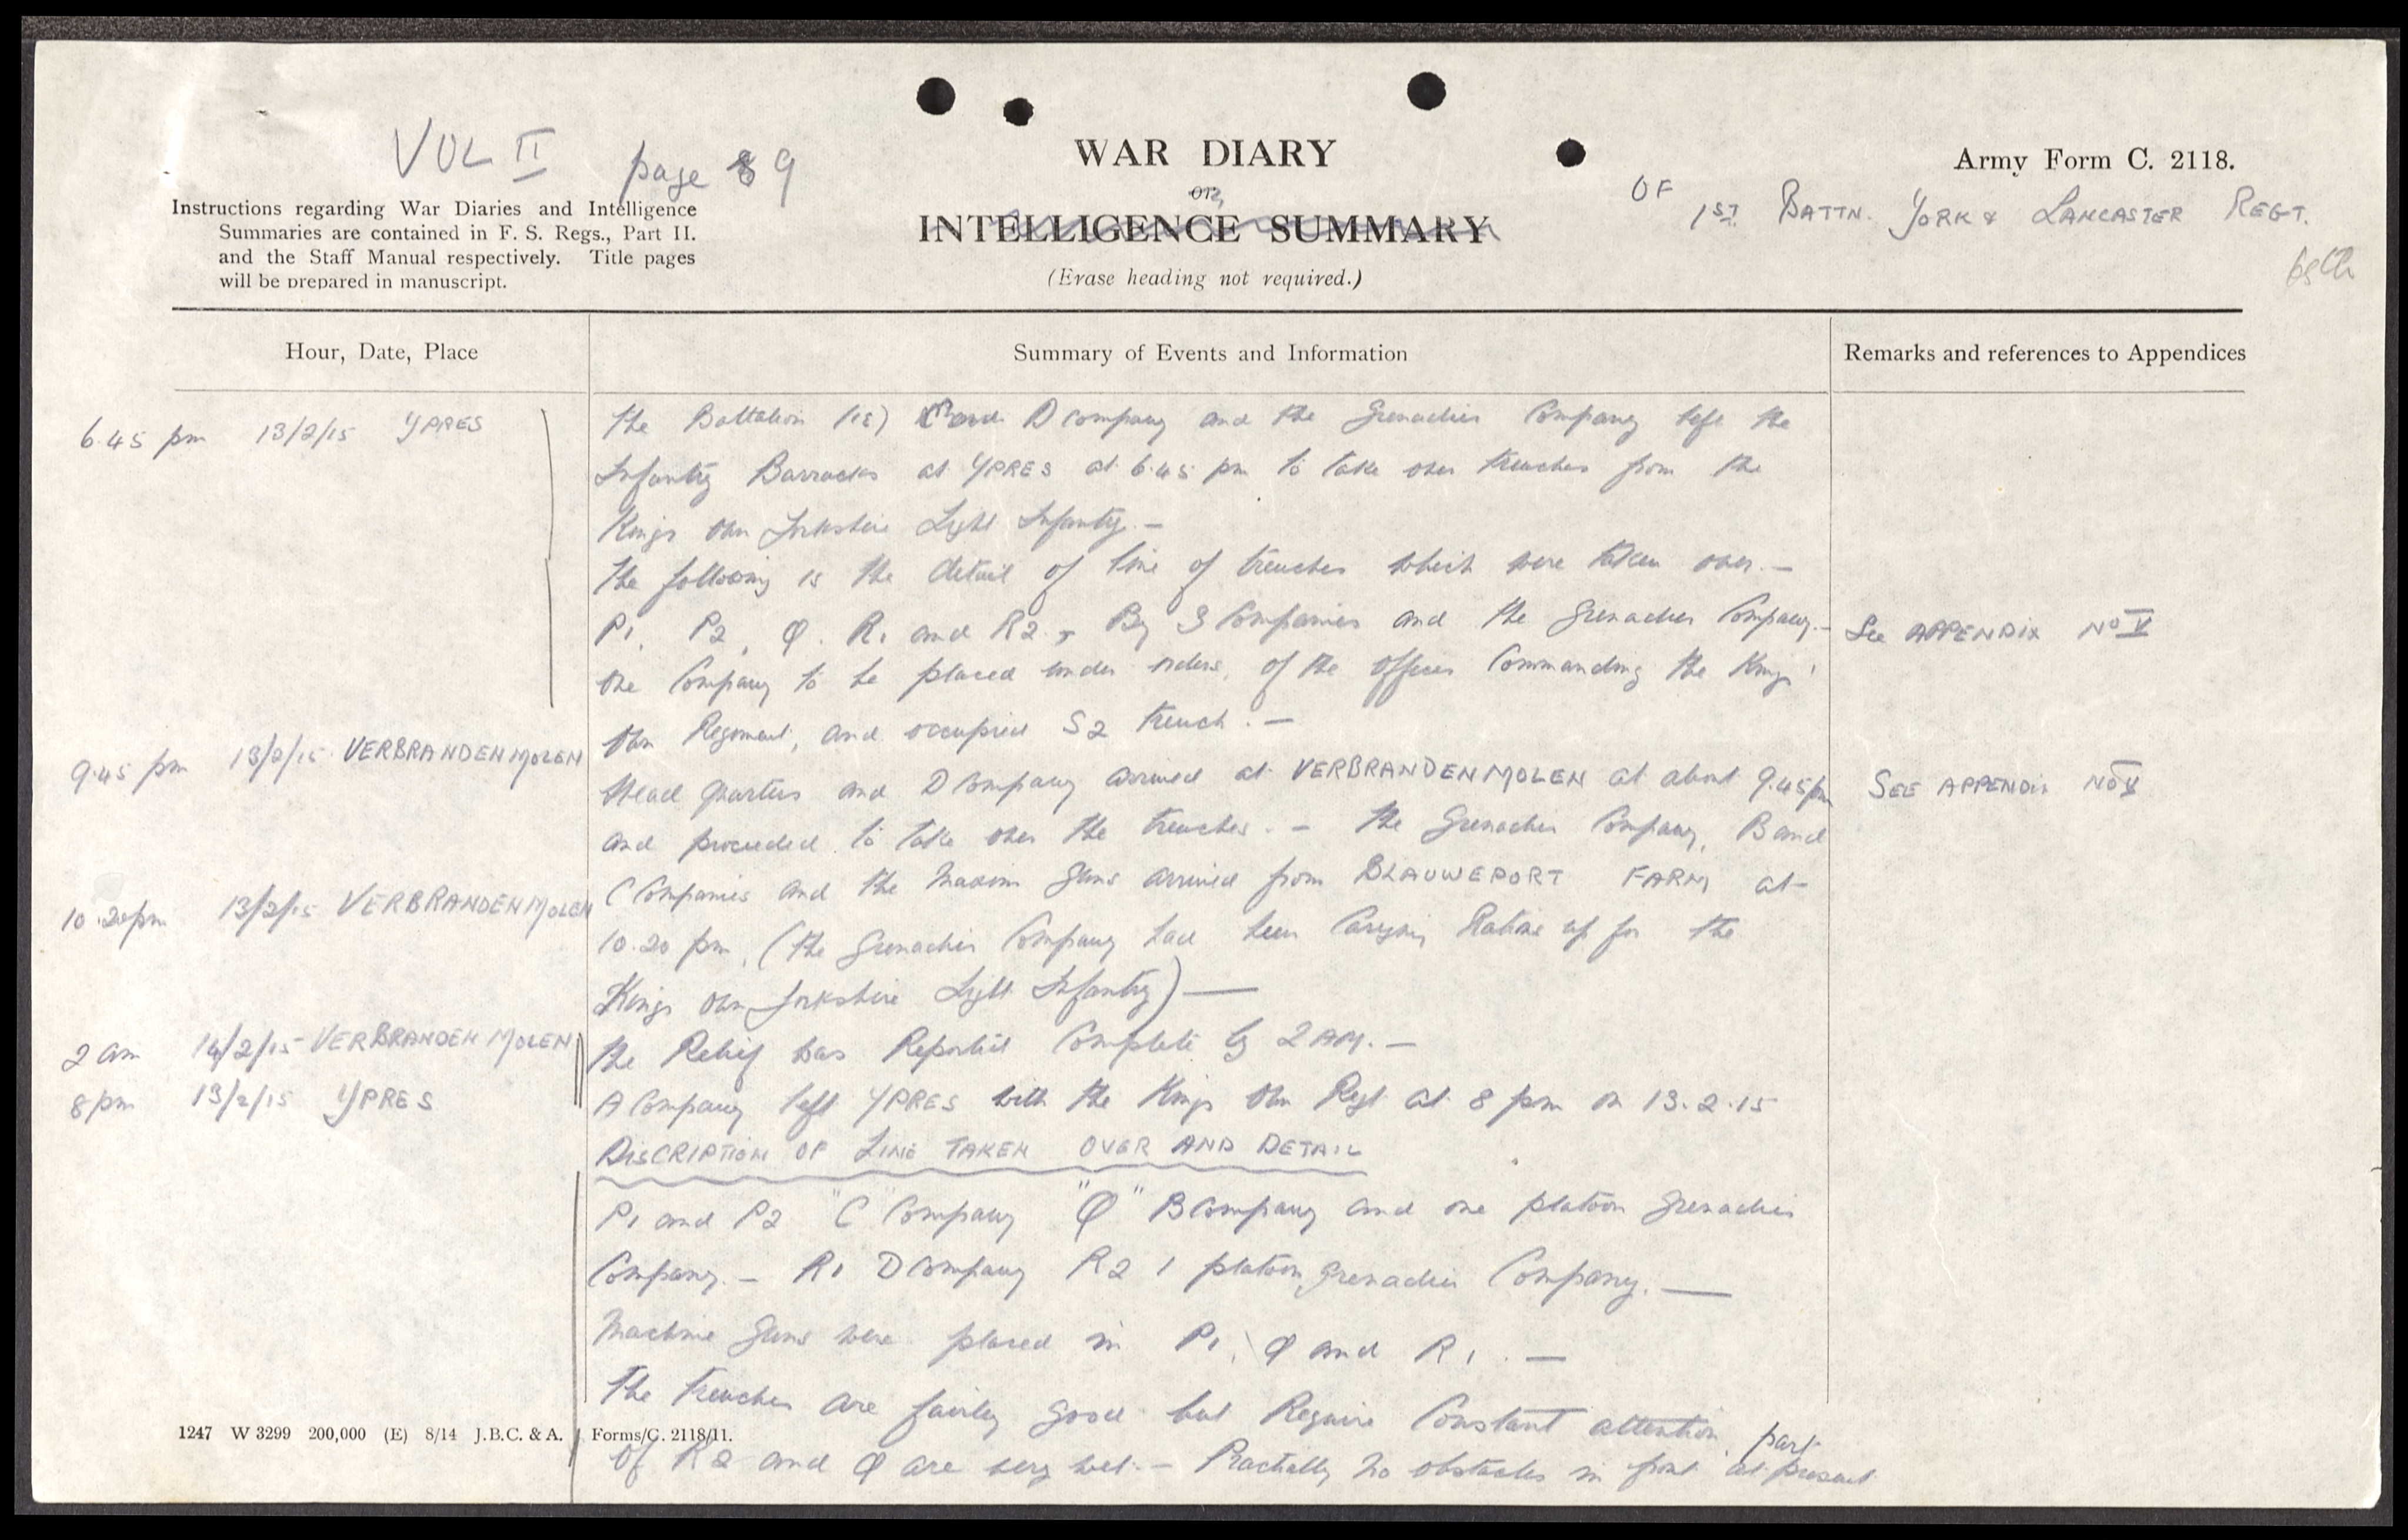 VOL II page 9
WAR DIARY
OR
INTELLIGENCE SUMMARY
(Erase heading not required.)
Army Form C. 2118.
OF 1ST BATTN. YORK & LANCASTER REGT.
Instructions regarding War Diaries and Intelligence
Summaries are contained in F. S. Regs., Part II.
and the Staff Manual respectively. Title pages
will be prepared in manuscript.
Hour, Date, Place
Summary of Events and Information
Remarks and references to Appendices
6.45 pm 13/2/15 YPRES
The Battalion and D Company and the Grenadier Company left the
Infantry Barracks at YPRES at 6.45 pm to take over trenches from the
Kings Own Yorkshire Light Infantry. —
The following is the detail of line of trenches which were taken over. —
P1, P2, Q. R1 and R2, By 3 Companies and the Grenadier Company. —
See APPENDIX No V
One Company to be placed under orders, of the Officer Commanding the Kings'
Own Regiment, and occupied S2 trench. —
9.45 pm 13/2/15 VERBRANDENMOLEN
Head Quarters and D Company arrived at VERBRANDENMOLEN at about 9.45 pm
SEE APPENDIX No V
and proceeded to take over the trenches. — The Grenadier Company, B and
C Companies and the Maxim Guns arrived from BLAUWEPORT FARM at
10.20 pm 13/2/15 VERBRANDENMOLEN
10.20 pm, (The Grenadier Company had been Carrying Rations up for the
Kings Own Yorkshire Light Infantry) —
2 am 14/2/15 VERBRANDEN MOLEN
The Relief was Reported Complete by 2 AM. —
8 pm 13/2/15 YPRES
A Company left YPRES with the Kings Own Regt at 8 pm on 13.2.15
DISCRIPTION OF LINE TAKEN OVER AND DETAIL
P1 and P2 "C" Company "Q" B Company and one platoon Grenadier
Company. — R1 D Company R2 1 platoon Grenadier Company. —
Machine Guns were placed in P1, Q and R1. —
The trenches are fairly good but Require Constant attention, part
of R2 and Q are very wet. — Practally no obstacles in front at present
1247 W 3299 200,000 (E) 8/14 J.B.C. & A. Forms/C. 2118/11.